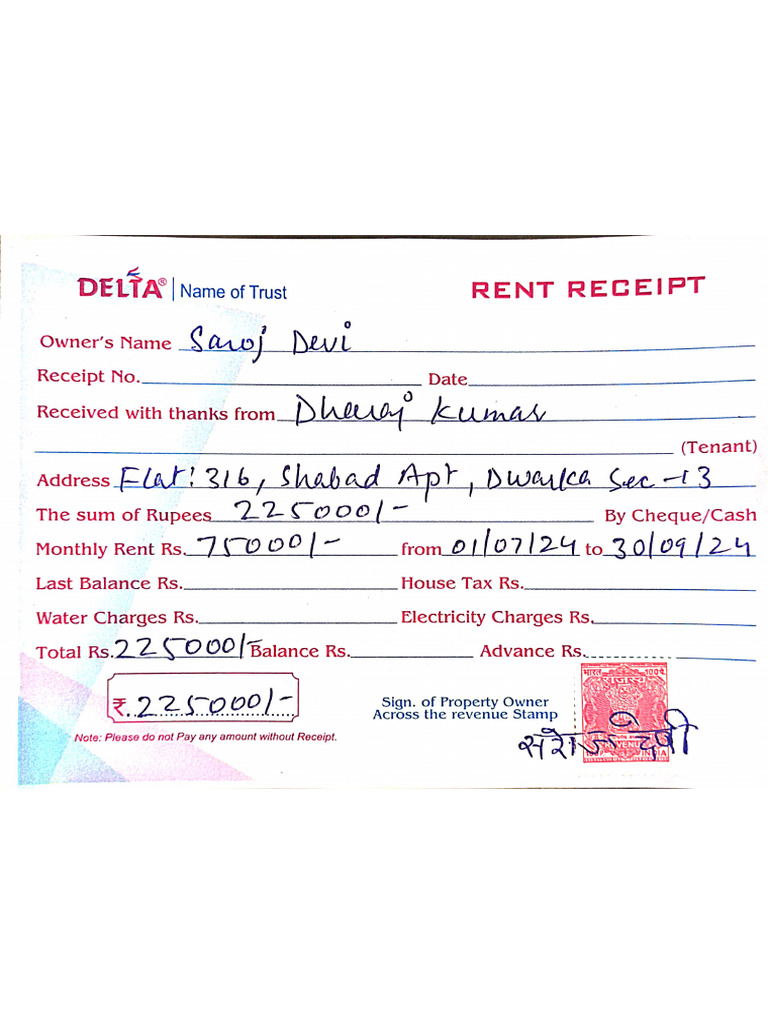 DELTA® | Name of Trust RENT RECEIPT
Owner's Name Saroj Devi
Receipt No. Date
Received with thanks from Dheeraj Kumar
(Tenant)
Address Flat: 316, Shabad Apt, Dwarka Sec-13
The sum of Rupees 225000/- By Cheque/Cash
Monthly Rent Rs. 75000/- from 01/07/24 to 30/09/24
Last Balance Rs. House Tax Rs.
Water Charges Rs. Electricity Charges Rs.
Total Rs. 225000/- Balance Rs. Advance Rs.
भारत 100पै.
राजस्व
₹ 225000/-
Sign. of Property Owner
Across the revenue Stamp
सरोज देवी
REVENUE
INDIA
Note: Please do not Pay any amount without Receipt.